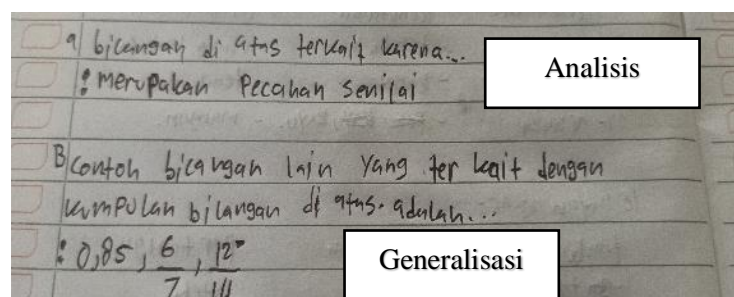 a bilangan di atas terkait karena...
Analisis
: merupakan Pecahan Senilai
B contoh bilangan lain yang ter kait dengan
kumpulan bilangan di atas. adalah...
: 0,85, 6/7, 12/14
Generalisasi